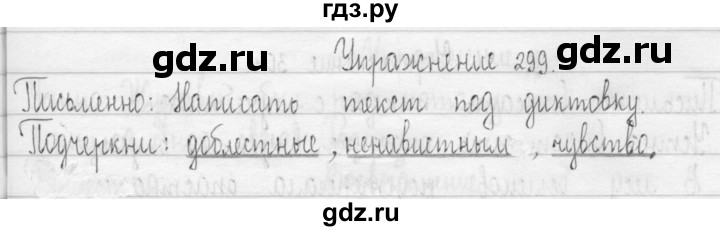 гдз.ру
gdz.ru gdz.ru
Упражнение 299.
Письменно: Написать текст под диктовку.
Подчеркни: доблестные, ненавистным, чувство.
gdz.ru gdz.ru
gdz.ru